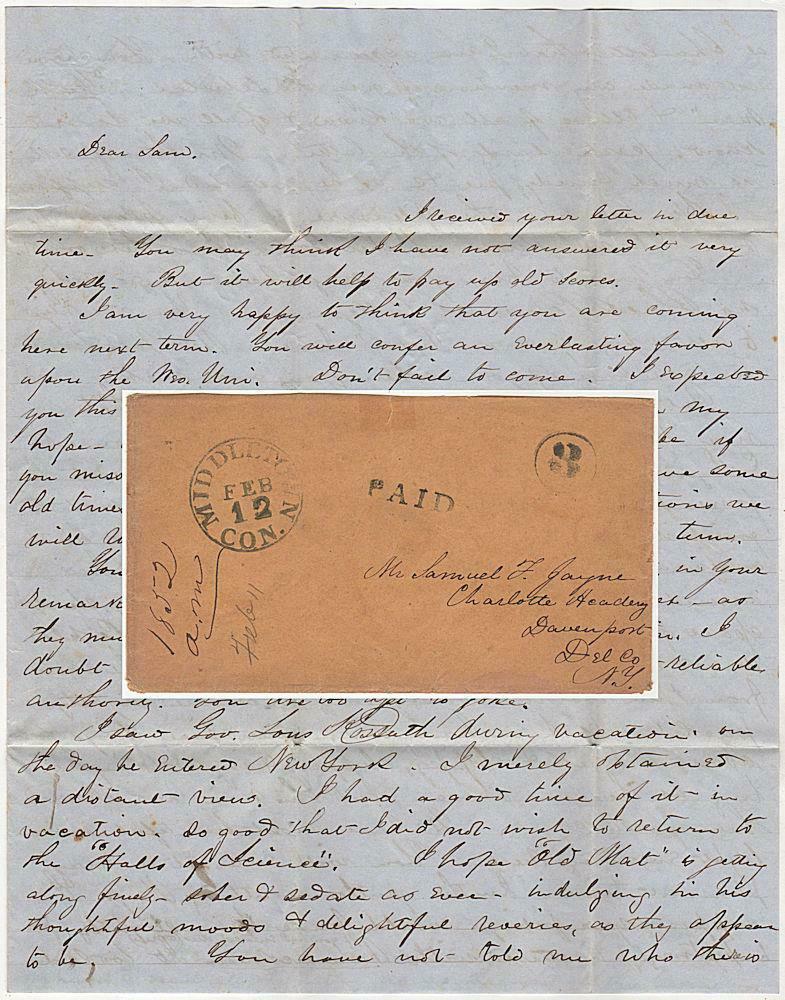 Dear Sam.
I received your letter in due
time- You may think I have not answered it very
quickly- But it will help to pay up old scores.
I am very happy to think that you are coming
here next term. You will confer an Everlasting favor
upon the Wes. Uni. Don't fail to come. I Expected
you this my
hope- if
you miss some
old time we
will term.
You in your
remark as
they mu I
doubt reliable
authority. You are too apt to joke.
I saw Gov. Lous Kossuth during vacation. on
the day he Entered New York. I merely obtained
a distant view. I had a good time of it in
vacation. so good that I did not wish to return to
the "Halls of Science". I hope "Old Mat" is getting
along finely- sober & sedate as Ever- indulging in his
thoughtful moods & delightful reveries, as they appear
to be. You have not told me who the
MIDDLETOWN
FEB
12
CON.
PAID
3
1852
a.m
Feb 11
Mr Samuel F. Jayne
Charlotte Academy
Davenport
Del Co
N.Y.